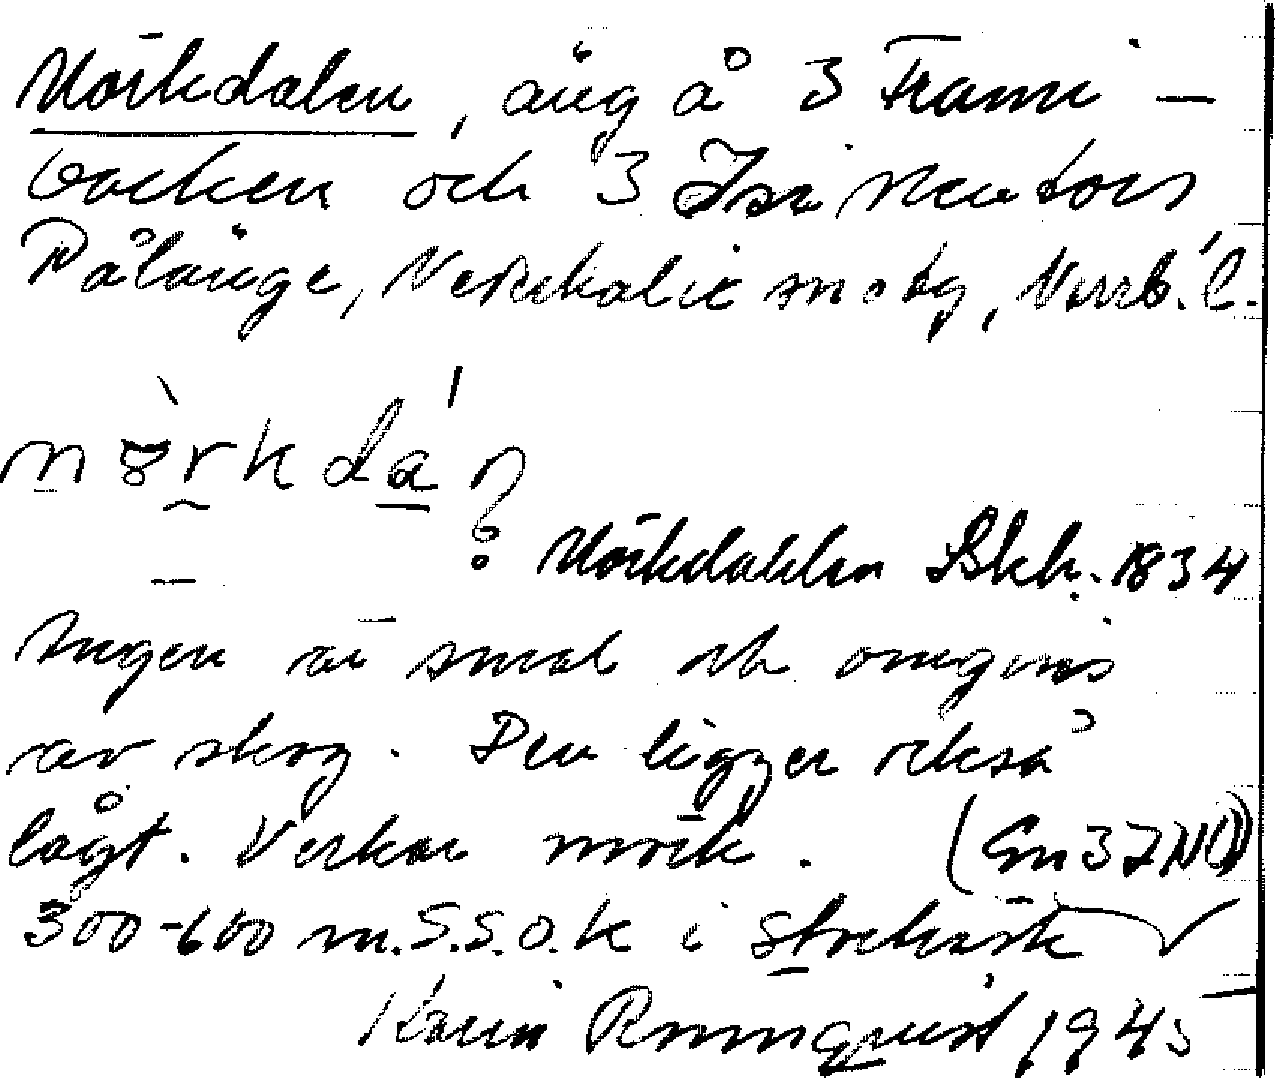 Mörkdalen, äng å 3 Frami-
backen och 3
Pålänge, Nederkalix snetg, Norrb. l.
mörkdan
Mörkdahlen Skh. 1834
Ängen är smal och omgives
av skog. Den ligger också
lågt. Verkar mörk. (En 37NO)
300-600 m. S.S.O. k i Storträsk
Karin Rönnquist 1945